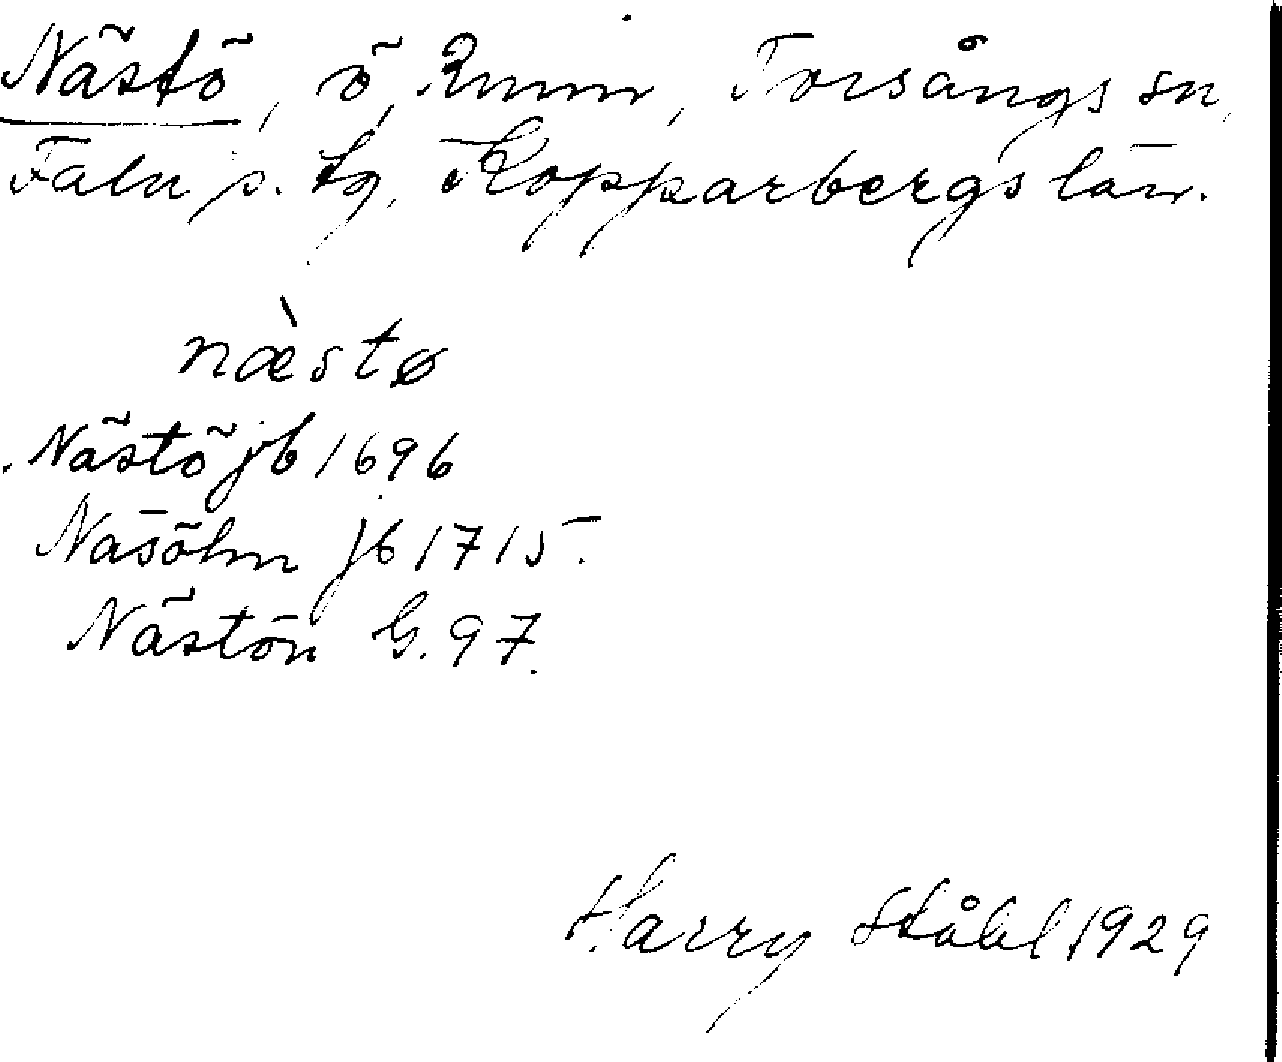 Nästö, ö, Runn, Torsångs sn,
Falu s. tg, Kopparbergs län.
næ̀stø
Nästö jb 1696
Näsöhn jb 1715.
Nästön G. 97.
Harry Ståhl 1929